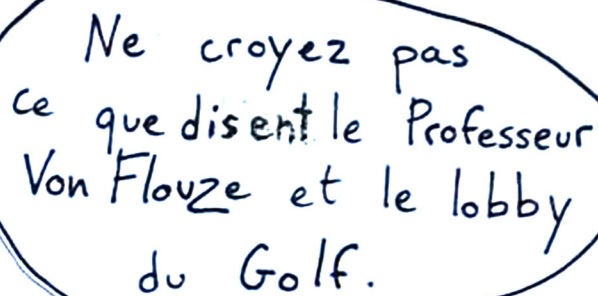 Ne croyez pas
ce que disent le Professeur
Von Flouze et le lobby
du Golf.